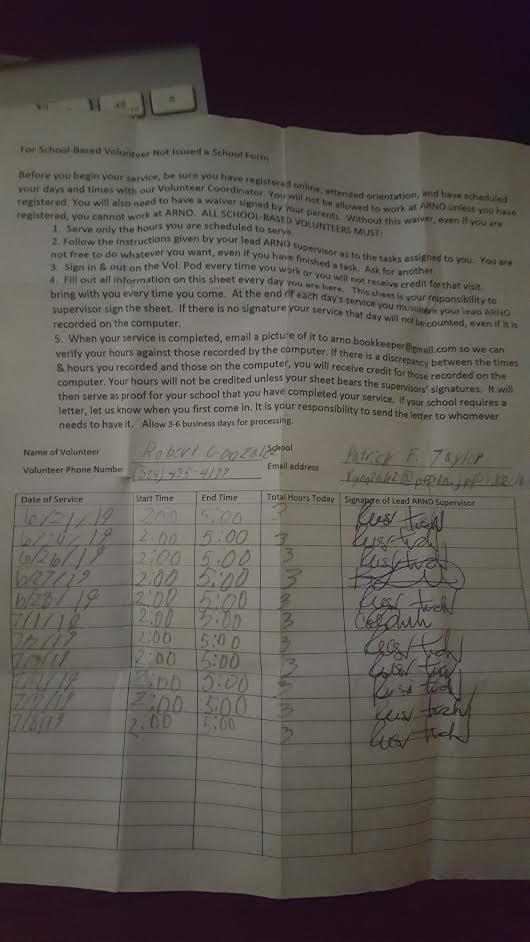 For School-Based Volunteer Not Issued a School Form
Before you begin your service, be sure you have registered online, attended orientation, and have scheduled
your days and times with our Volunteer Coordinator. You will not be allowed to work at ARNO unless you have
registered. You will also need to have a waiver signed by your parents. Without this waiver, even if you are
registered, you cannot work at ARNO. ALL SCHOOL-BASED VOLUNTEERS MUST:
1. Serve only the hours you are scheduled to serve.
2. Follow the instructions given by your lead ARNO supervisor as to the tasks assigned to you. You are
not free to do whatever you want, even if you have finished a task. Ask for another.
3. Sign in & out on the Vol. Pod every time you work or you will not receive credit for that visit.
4. Fill out all information on this sheet every day you are here. This sheet is your responsibility to
bring with you every time you come. At the end of each day's service you must have your lead ARNO
supervisor sign the sheet. If there is no signature your service that day will not be counted, even if it is
recorded on the computer.
5. When your service is completed, email a picture of it to arno.bookkeeper@gmail.com so we can
verify your hours against those recorded by the computer. If there is a discrepancy between the times
& hours you recorded and those on the computer, you will receive credit for those recorded on the
computer. Your hours will not be credited unless your sheet bears the supervisors' signatures. It will
then serve as proof for your school that you have completed your service. If your school requires a
letter, let us know when you first come in. It is your responsibility to send the letter to whomever
needs to have it. Allow 3-6 business days for processing.
Name of Volunteer Robert Gonzalez School Patrick F. Taylor
Volunteer Phone Number Email address
Date of Service Start Time End Time Total Hours Today Signature of Lead ARNO Supervisor
6/21/19 2:00 5:00 3
6/24/19 2:00 5:00 3
6/26/19 2:00 5:00 3
6/27/19 2:00 5:00 3
6/28/19 2:00 5:00 3
7/1/19 2:00 5:00 3
2:00 5:00 3
2:00 5:00 3
2:00 5:00 3
2:00 5:00 3
7/8/19 2:00 5:00 3